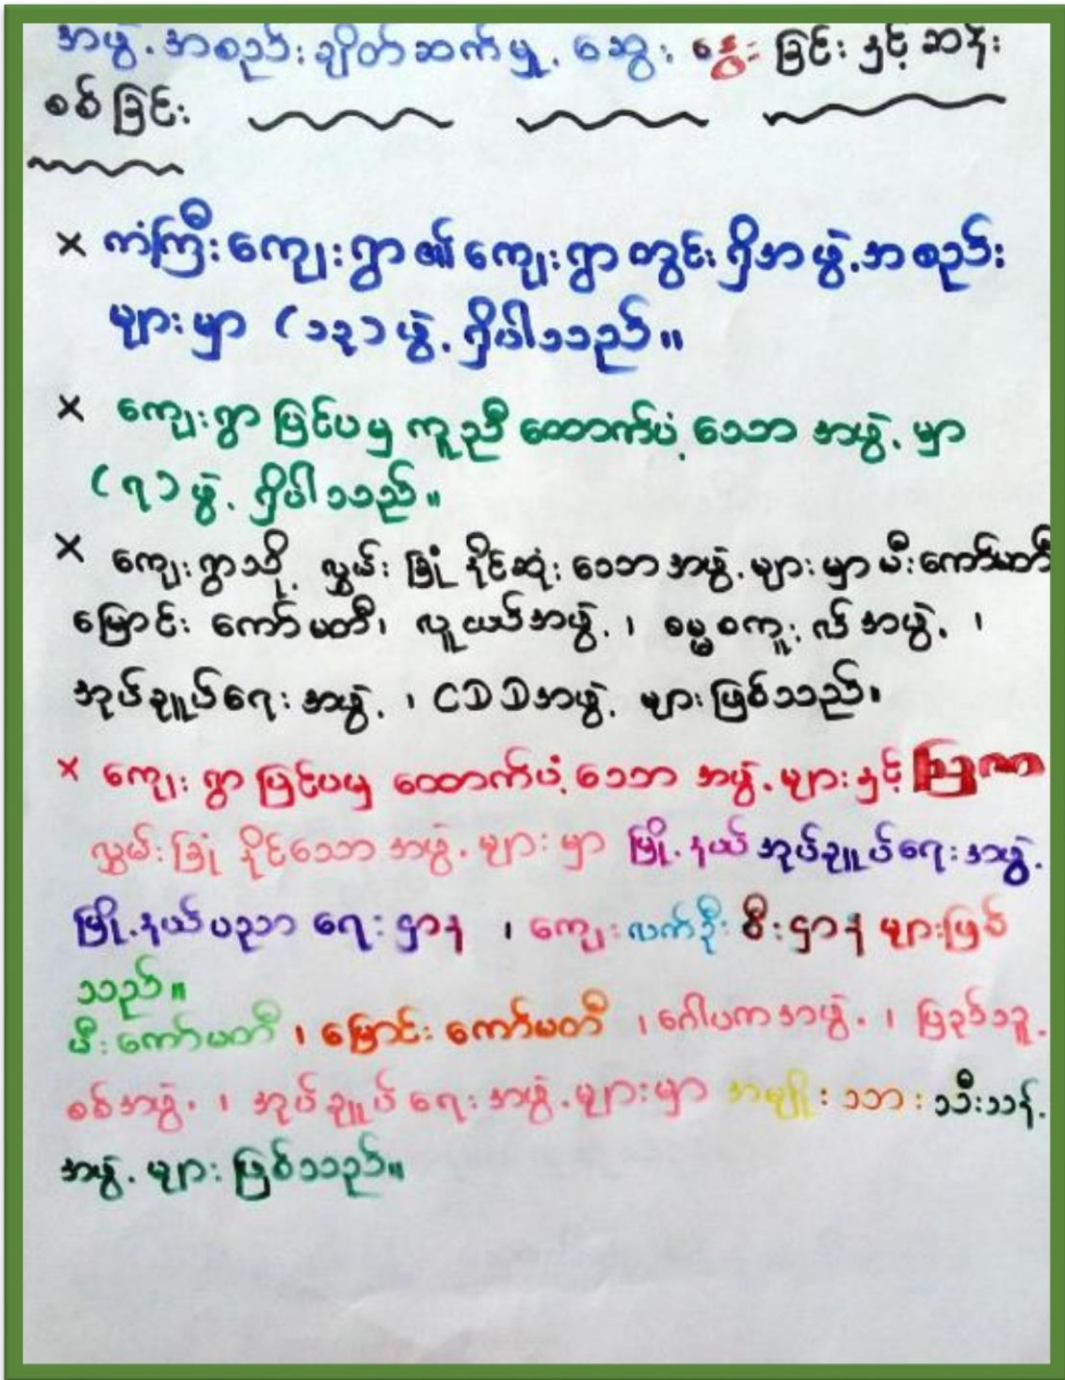 အဖွဲ့အစည်းချိတ်ဆက်မှု ဆွေးနွေးခြင်းနှင့်ဆန်း
စစ်ခြင်း
× ကံကြီးကျေးရွာ၏ကျေးရွာတွင်းရှိအဖွဲ့အစည်း
များမှာ (၁၃) ဖွဲ့ ရှိပါသည်။
× ကျေးရွာပြင်ပမှ ကူညီထောက်ပံ့သောအဖွဲ့မှာ
(၇) ဖွဲ့ ရှိပါသည်။
× ကျေးရွာသို့ လွှမ်းခြုံနိုင်ဆုံးသောအဖွဲ့များမှာမီးကော်မတီ
မြောင်းကော်မတီ၊ လူငယ်အဖွဲ့၊ ဓမ္မစကူးလ်အဖွဲ့၊
အုပ်ချုပ်ရေးအဖွဲ့၊ CDDအဖွဲ့များဖြစ်သည်။
× ကျေးရွာပြင်ပမှ ထောက်ပံ့သောအဖွဲ့များနှင့်
လွှမ်းခြုံနိုင်သောအဖွဲ့များမှာ မြို့နယ်အုပ်ချုပ်ရေးအဖွဲ့
မြို့နယ်ပညာရေးဌာန ၊ ကျေးလက်ဦးစီးဌာနများဖြစ်
သည်။
မီးကော်မတီ၊ မြောင်းကော်မတီ ၊ဂေါပကအဖွဲ့၊ ပြည်သူ့
စစ်အဖွဲ့၊ အုပ်ချုပ်ရေးအဖွဲ့များမှာ အမျိုးသားသီးသန့်
အဖွဲ့များဖြစ်သည်။